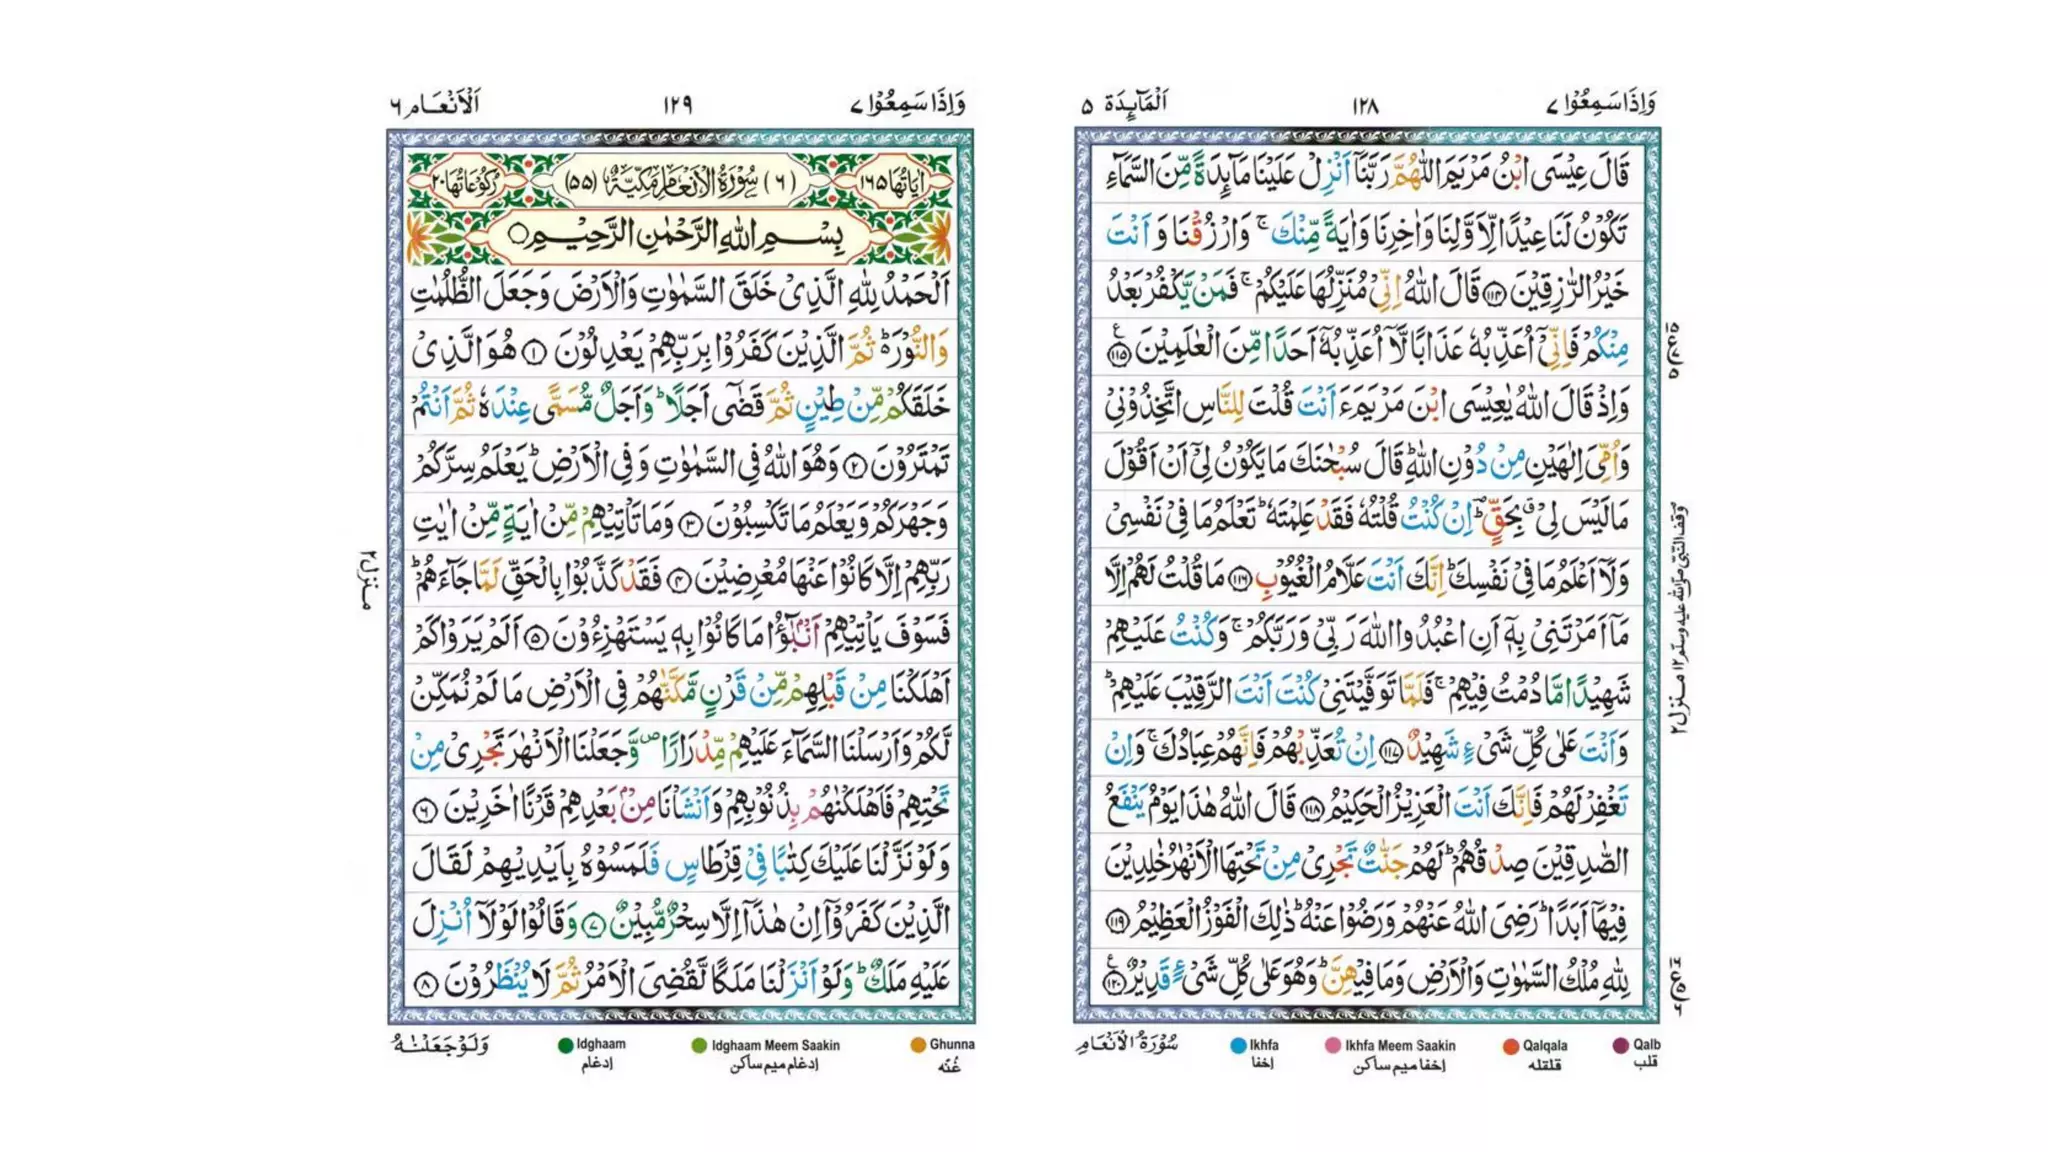 وَاِذَا سَمِعُوْا ٧
١٢٨
اَلْمَآىِٕدَة ٥
قَالَ عِيْسَى ابْنُ مَرْيَمَ اللّٰهُمَّ رَبَّنَاۤ اَنْزِلْ عَلَيْنَا مَآىِٕدَةً مِّنَ السَّمَآءِ
تَكُوْنُ لَنَا عِيْدًا لِّاَوَّلِنَا وَاٰخِرِنَا وَاٰيَةً مِّنْكَ ۚ وَارْزُقْنَا وَ اَنْتَ
خَيْرُ الرّٰزِقِيْنَ ﴿١١٤﴾ قَالَ اللّٰهُ اِنِّيْ مُنَزِّلُهَا عَلَيْكُمْ ۚ فَمَنْ يَّكْفُرْ بَعْدُ
مِنْكُمْ فَاِنِّيْۤ اُعَذِّبُهٗ عَذَابًا لَّاۤ اُعَذِّبُهٗۤ اَحَدًا مِّنَ الْعٰلَمِيْنَ ﴿١١٥﴾ ع
وَاِذْ قَالَ اللّٰهُ يٰعِيْسَى ابْنَ مَرْيَمَ ءَاَنْتَ قُلْتَ لِلنَّاسِ اتَّخِذُوْنِيْ
وَاُمِّيَ اِلٰهَيْنِ مِنْ دُوْنِ اللّٰهِ ؕ قَالَ سُبْحٰنَكَ مَا يَكُوْنُ لِيْۤ اَنْ اَقُوْلَ
مَا لَيْسَ لِيْ ۗ بِحَقٍّ ؕ اِنْ كُنْتُ قُلْتُهٗ فَقَدْ عَلِمْتَهٗ ؕ تَعْلَمُ مَا فِيْ نَفْسِيْ
وَلَاۤ اَعْلَمُ مَا فِيْ نَفْسِكَ ؕ اِنَّكَ اَنْتَ عَلَّامُ الْغُيُوْبِ ﴿١١٦﴾ مَا قُلْتُ لَهُمْ اِلَّا
مَاۤ اَمَرْتَنِيْ بِهٖۤ اَنِ اعْبُدُوا اللّٰهَ رَبِّيْ وَرَبَّكُمْ ۚ وَكُنْتُ عَلَيْهِمْ
شَهِيْدًا مَّا دُمْتُ فِيْهِمْ ۚ فَلَمَّا تَوَفَّيْتَنِيْ كُنْتَ اَنْتَ الرَّقِيْبَ عَلَيْهِمْ ؕ
وَاَنْتَ عَلٰى كُلِّ شَيْءٍ شَهِيْدٌ ﴿١١٧﴾ اِنْ تُعَذِّبْهُمْ فَاِنَّهُمْ عِبَادُكَ ۚ وَاِنْ
تَغْفِرْ لَهُمْ فَاِنَّكَ اَنْتَ الْعَزِيْزُ الْحَكِيْمُ ﴿١١٨﴾ قَالَ اللّٰهُ هٰذَا يَوْمُ يَنْفَعُ
الصّٰدِقِيْنَ صِدْقُهُمْ ؕ لَهُمْ جَنّٰتٌ تَجْرِيْ مِنْ تَحْتِهَا الْاَنْهٰرُ خٰلِدِيْنَ
فِيْهَاۤ اَبَدًا ؕ رَضِيَ اللّٰهُ عَنْهُمْ وَرَضُوْا عَنْهُ ؕ ذٰلِكَ الْفَوْزُ الْعَظِيْمُ ﴿١١٩﴾
لِلّٰهِ مُلْكُ السَّمٰوٰتِ وَالْاَرْضِ وَمَا فِيْهِنَّ ؕ وَهُوَ عَلٰى كُلِّ شَيْءٍ قَدِيْرٌ ﴿١٢٠﴾ ع
وقف النبي صلى الله عليه وسلم ١٢ مـنزل ٢
سُوْرَةُ الْاَنْعَامِ
Ikhfa
اِخفا
Ikhfa Meem Saakin
اِخفا میم ساکن
Qalqala
قلقله
Qalb
قلب
وَاِذَا سَمِعُوْا ٧
١٢٩
اَلْاَنْعَام ٦
اٰيَاتُهَا ١٦٥
(٦) سُوْرَةُ الْاَنْعَامِ مَكِّيَّةٌ (٥٥)
رُكُوْعَاتُهَا ٢٠
بِسْمِ اللّٰهِ الرَّحْمٰنِ الرَّحِيْمِ
اَلْحَمْدُ لِلّٰهِ الَّذِيْ خَلَقَ السَّمٰوٰتِ وَالْاَرْضَ وَجَعَلَ الظُّلُمٰتِ
وَالنُّوْرَ ؕ ثُمَّ الَّذِيْنَ كَفَرُوْا بِرَبِّهِمْ يَعْدِلُوْنَ ﴿١﴾ هُوَ الَّذِيْ
خَلَقَكُمْ مِّنْ طِيْنٍ ثُمَّ قَضٰۤى اَجَلًا ؕ وَاَجَلٌ مُّسَمًّى عِنْدَهٗ ثُمَّ اَنْتُمْ
تَمْتَرُوْنَ ﴿٢﴾ وَهُوَ اللّٰهُ فِي السَّمٰوٰتِ وَفِي الْاَرْضِ ؕ يَعْلَمُ سِرَّكُمْ
وَجَهْرَكُمْ وَيَعْلَمُ مَا تَكْسِبُوْنَ ﴿٣﴾ وَمَا تَاْتِيْهِمْ مِّنْ اٰيَةٍ مِّنْ اٰيٰتِ
رَبِّهِمْ اِلَّا كَانُوْا عَنْهَا مُعْرِضِيْنَ ﴿٤﴾ فَقَدْ كَذَّبُوْا بِالْحَقِّ لَمَّا جَآءَهُمْ ؕ
فَسَوْفَ يَاْتِيْهِمْ اَنْۢبٰٓؤُا مَا كَانُوْا بِهٖ يَسْتَهْزِءُوْنَ ﴿٥﴾ اَلَمْ يَرَوْا كَمْ
اَهْلَكْنَا مِنْ قَبْلِهِمْ مِّنْ قَرْنٍ مَّكَّنّٰهُمْ فِي الْاَرْضِ مَا لَمْ نُمَكِّنْ
لَّكُمْ وَاَرْسَلْنَا السَّمَآءَ عَلَيْهِمْ مِّدْرَارًا ۪ وَّجَعَلْنَا الْاَنْهٰرَ تَجْرِيْ مِنْ
تَحْتِهِمْ فَاَهْلَكْنٰهُمْ بِذُنُوْبِهِمْ وَاَنْشَاْنَا مِنْۢ بَعْدِهِمْ قَرْنًا اٰخَرِيْنَ ﴿٦﴾
وَلَوْ نَزَّلْنَا عَلَيْكَ كِتٰبًا فِيْ قِرْطَاسٍ فَلَمَسُوْهُ بِاَيْدِيْهِمْ لَقَالَ
الَّذِيْنَ كَفَرُوْۤا اِنْ هٰذَاۤ اِلَّا سِحْرٌ مُّبِيْنٌ ﴿٧﴾ وَقَالُوْا لَوْلَاۤ اُنْزِلَ
عَلَيْهِ مَلَكٌ ؕ وَلَوْ اَنْزَلْنَا مَلَكًا لَّقُضِيَ الْاَمْرُ ثُمَّ لَا يُنْظَرُوْنَ ﴿٨﴾
مـنزل ٢
وَلَوْ جَعَلْنٰهُ
Idghaam
اِدغام
Idghaam Meem Saakin
اِدغام میم ساکن
Ghunna
غُنّه